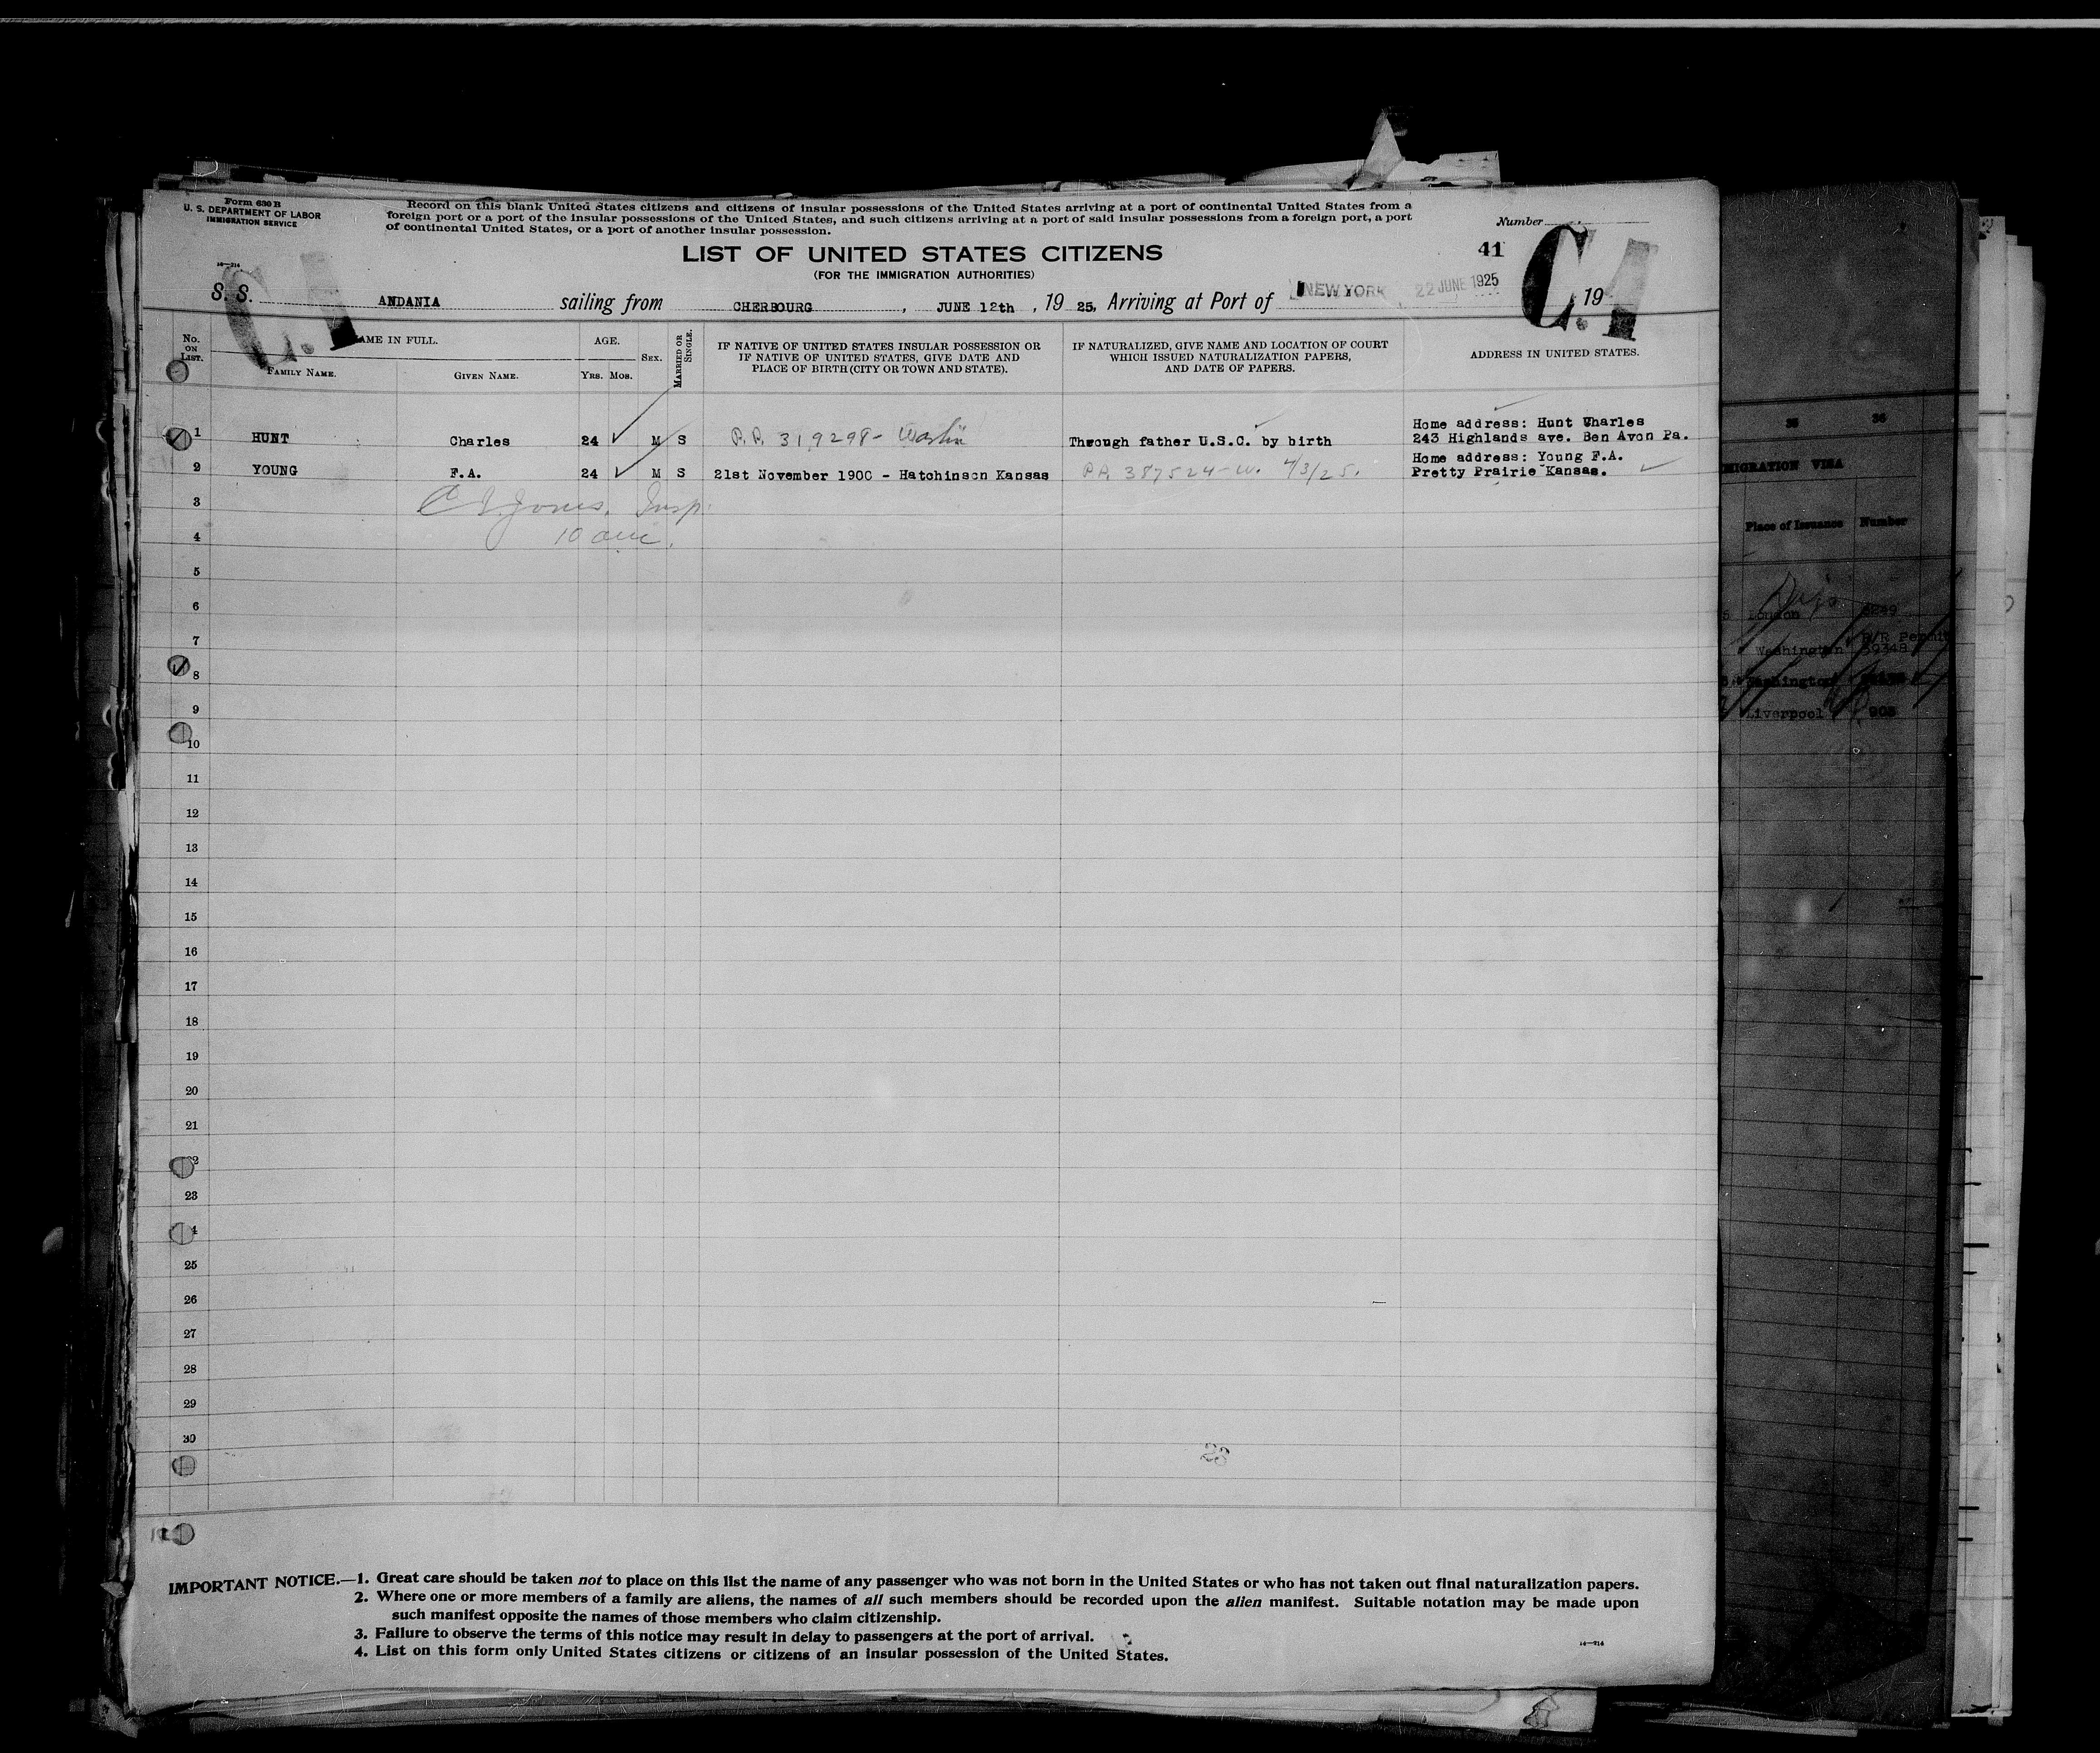 Form 630 B
U. S. DEPARTMENT OF LABOR
IMMIGRATION SERVICE
Record on this blank United States citizens and citizens of insular possessions of the United States arriving at a port of continental United States from a
foreign port or a port of the insular possessions of the United States, and such citizens arriving at a port of said insular possessions from a foreign port, a port
of continental United States, or a port of another insular possession.
Number
LIST OF UNITED STATES CITIZENS
41
(FOR THE IMMIGRATION AUTHORITIES)
C.1
C.1
S. S. ANDANIA sailing from CHERBOURG, JUNE 12th, 19 25, Arriving at Port of NEW YORK 22 JUNE 1925, 19
No. ON LIST.
NAME IN FULL.
FAMILY NAME.
GIVEN NAME.
AGE.
YRS. MOS.
SEX.
MARRIED OR SINGLE.
IF NATIVE OF UNITED STATES INSULAR POSSESSION OR
IF NATIVE OF UNITED STATES, GIVE DATE AND
PLACE OF BIRTH (CITY OR TOWN AND STATE).
IF NATURALIZED, GIVE NAME AND LOCATION OF COURT
WHICH ISSUED NATURALIZATION PAPERS,
AND DATE OF PAPERS.
ADDRESS IN UNITED STATES.
Home address: Hunt Charles
1 HUNT Charles 24 M S P.P. 319298 - Washn Through father U.S.C. by birth 243 Highlands ave. Ben Avon Pa.
Home address: Young F.A.
2 YOUNG F.A. 24 M S 21st November 1900 - Hatchinson Kansas P.P. 387524-W. 4/3/25. Pretty Prairie Kansas.
3 Jones, Insp.
4 10 am.
5
6
7
8
9
10
11
12
13
14
15
16
17
18
19
20
21
22
23
24
25
26
27
28
29
30
IMPORTANT NOTICE.—1. Great care should be taken not to place on this list the name of any passenger who was not born in the United States or who has not taken out final naturalization papers.
2. Where one or more members of a family are aliens, the names of all such members should be recorded upon the alien manifest. Suitable notation may be made upon
such manifest opposite the names of those members who claim citizenship.
3. Failure to observe the terms of this notice may result in delay to passengers at the port of arrival.
4. List on this form only United States citizens or citizens of an insular possession of the United States.
35 36
IMMIGRATION VISA
Place of Issuance Number
London
R/R Permit
Washington 39348
Washington
Liverpool 903